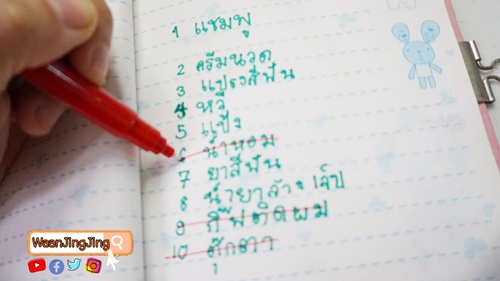 1 แชมพู
2 ครีมนวด
3 แปรงสีฟัน
4 หวี
5 แป้ง
6 น้ำหอม
7 ยาสีฟัน
8 น้ำยาล้างเล็บ
9 กิ๊ฟติดผม
10 ตุ๊กตา
WeenJingJing